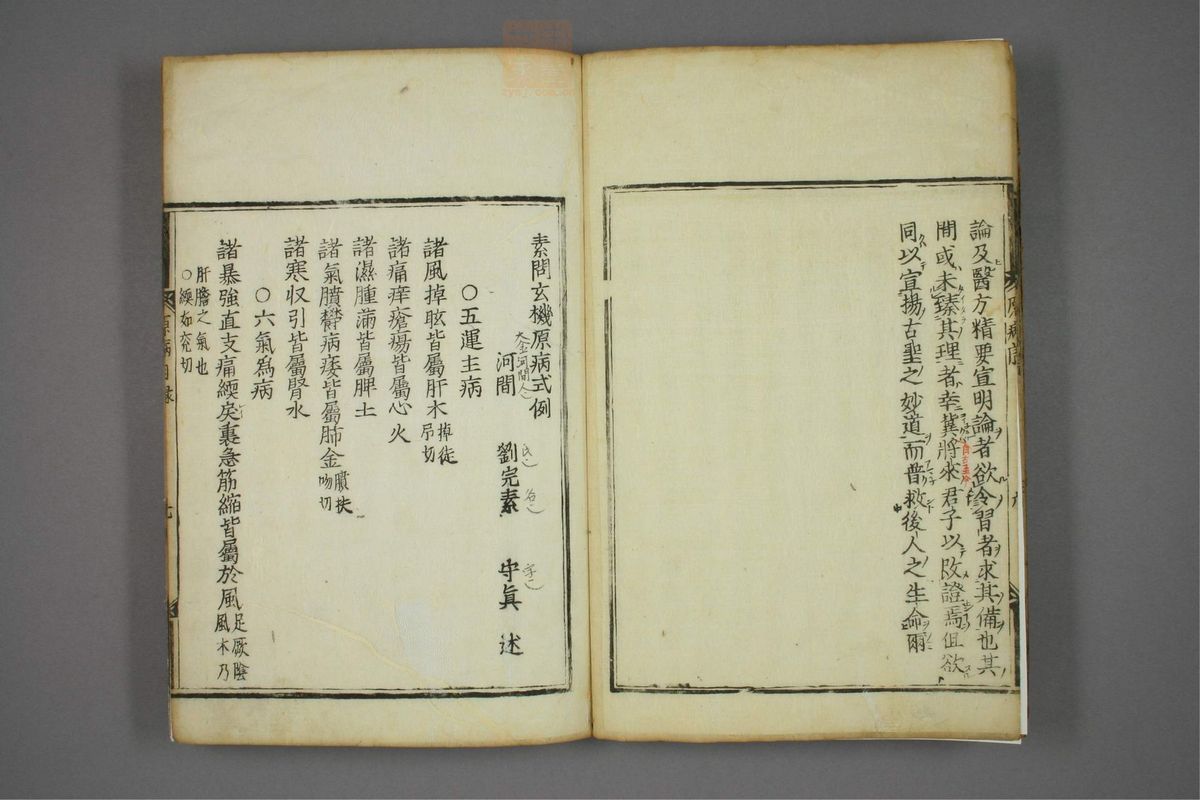 論及醫方精要宣明論者欲令習者求其備也其
間或未臻其理者幸冀將來君子以改證焉但欲
同以宣揚古聖之妙道而普救後人之生命爾
素問玄機原病式例
大金河間人
河間 劉完素 守眞 述
〇五運主病
諸風掉眩皆屬肝木掉徒弔切
諸痛痒瘡瘍皆屬心火
諸濕腫滿皆屬脾土
諸氣膹鬱病痿皆屬肺金膹扶吻切
諸寒収引皆屬腎水
〇六氣爲病
諸暴強直支痛緛戾裏急筋縮皆屬於風足厥陰風木乃
肝膽之氣也
〇緛如兖切